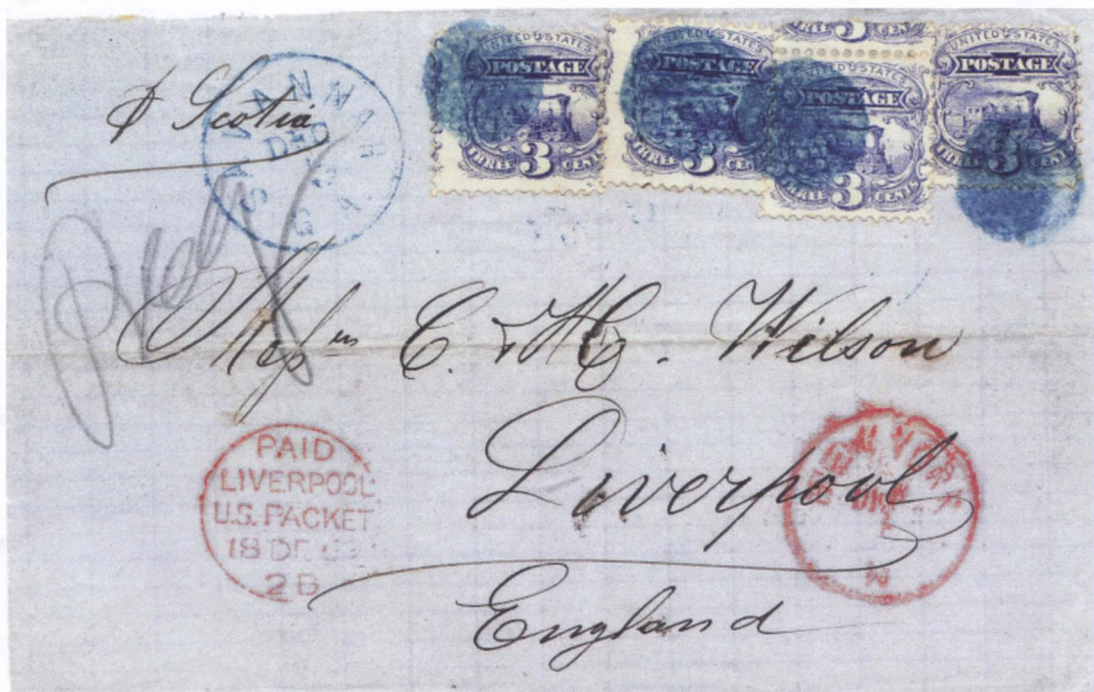 ⅌ Scotia
SAVANNAH
DEC
GA.
UNITED STATES
POSTAGE
THREE 3 CENTS
UNITED STATES
POSTAGE
THREE 3 CENTS
3 CENTS
UNITED STATES
POSTAGE
THREE 3 CENTS
UNITED STATES
POSTAGE
THREE 3 CENTS
Messrs C. & H. Wilson
Liverpool
England
PAID
LIVERPOOL
U.S. PACKET
18 DE 69
2B
NEW YORK